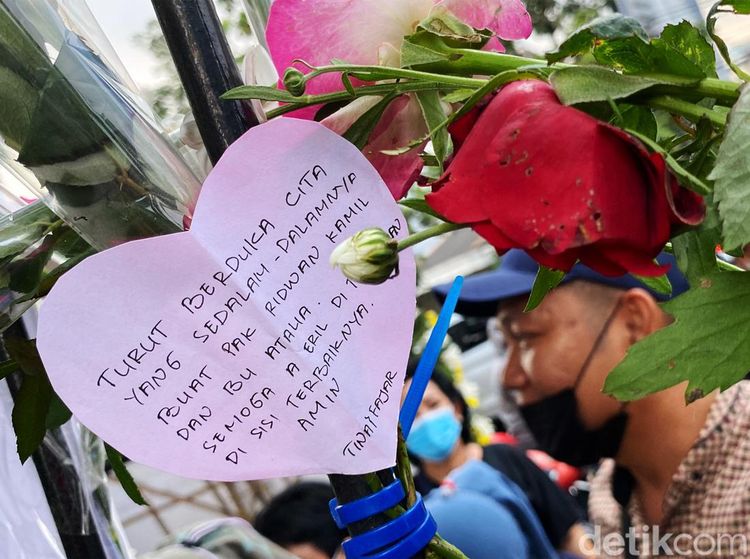 TURUT BERDUKA CITA
YANG SEDALAM-DALAMNYA
BUAT PAK RIDWAN KAMIL
DAN BU ATALIA.
SEMOGA A ERIL DI
DI SISI TERBAIKNYA.
AMIN
TINA/FAJAR
detikcom